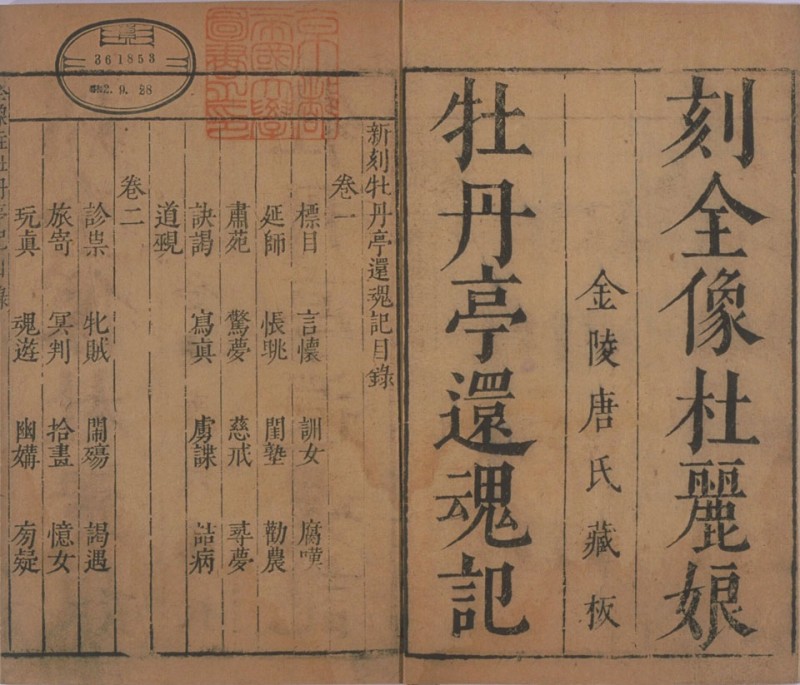 刻全像杜麗娘
金陵唐氏藏板
牡丹亭還魂記
京都
帝國大學
圖書之印
361853
昭和2.9.28
新刻牡丹亭還魂記目錄
卷一
標目 言懷 訓女 腐嘆
延師 悵眺 閨塾 勸農
肅苑 驚夢 慈戒 尋夢
訣謁 寫真 虜諜 詰病
道覡
卷二
診祟 牝賊 鬧殤 謁遇
旅寄 冥判 拾畫 憶女
玩真 魂遊 幽媾 㫄疑